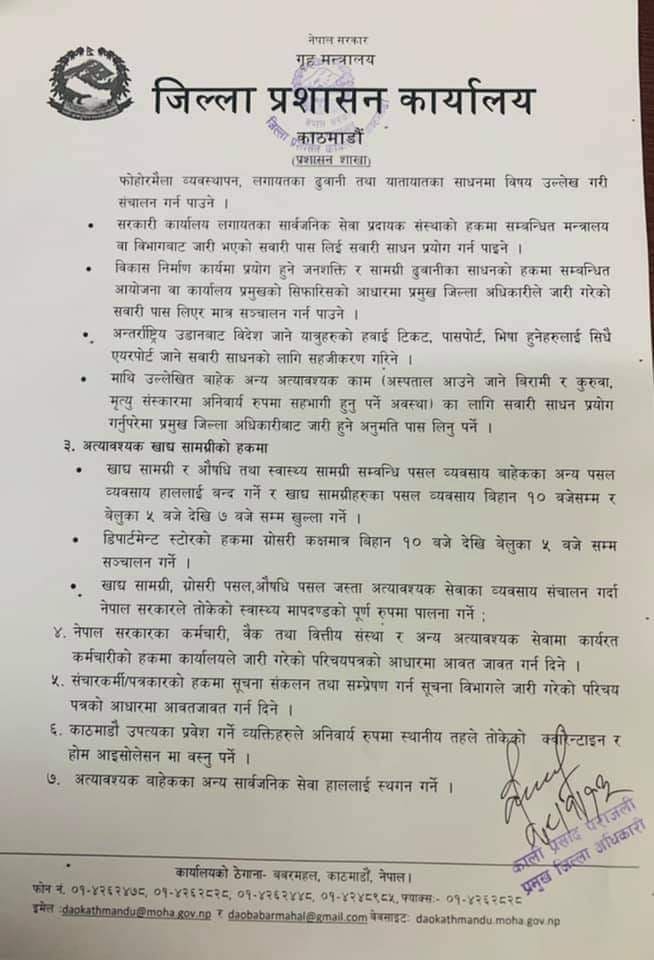 नेपाल सरकार
गृह मन्त्रालय
जिल्ला प्रशासन कार्यालय
काठमाडौं
(प्रशासन शाखा)
फोहोरमैला व्यवस्थापन, लगायतका ढुवानी तथा यातायातका साधनमा विषय उल्लेख गरी
संचालन गर्न पाउने ।
• सरकारी कार्यालय लगायतका सार्वजनिक सेवा प्रदायक संस्थाको हकमा सम्बन्धित मन्त्रालय
वा विभागबाट जारी भएको सवारी पास लिई सवारी साधन प्रयोग गर्न पाइने ।
• विकास निर्माण कार्यमा प्रयोग हुने जनशक्ति र सामग्री ढुवानीका साधनको हकमा सम्बन्धित
आयोजना वा कार्यालय प्रमुखको सिफारिसको आधारमा प्रमुख जिल्ला अधिकारीले जारी गरेको
सवारी पास लिएर मात्र सञ्चालन गर्न पाउने ।
• अन्तर्राष्ट्रिय उडानबाट विदेश जाने यात्रुहरुको हवाई टिकट, पासपोर्ट, भिषा हुनेहरुलाई सिधै
एयरपोर्ट जाने सवारी साधनको लागि सहजीकरण गरिने ।
• माथि उल्लेखित वाहेक अन्य अत्यावश्यक काम (अस्पताल आउने जाने बिरामी र कुरुवा,
मृत्यु संस्कारमा अनिवार्य रुपमा सहभागी हुनु पर्ने अवस्था) का लागि सवारी साधन प्रयोग
गर्नुपरेमा प्रमुख जिल्ला अधिकारीबाट जारी हुने अनुमति पास लिनु पर्ने ।
३. अत्यावश्यक खाद्य सामग्रीको हकमा
• खाद्य सामग्री र औषधि तथा स्वास्थ्य सामग्री सम्बन्धि पसल व्यवसाय वाहेकका अन्य पसल
व्यवसाय हाललाई बन्द गर्ने र खाद्य सामग्रीहरुका पसल व्यवसाय विहान १० वजेसम्म र
बेलुका ५ बजे देखि ७ वजे सम्म खुल्ला गर्ने ।
• डिपार्टमेन्ट स्टोरको हकमा ग्रोसरी कक्षमात्र विहान १० वजे देखि बेलुका ५ वजे सम्म
सञ्चालन गर्ने ।
• खाद्य सामग्री, ग्रोसरी पसल,औषधि पसल जस्ता अत्यावश्यक सेवाका व्यवसाय संचालन गर्दा
नेपाल सरकारले तोकेको स्वास्थ्य मापदण्डको पूर्ण रुपमा पालना गर्ने ;
४. नेपाल सरकारका कर्मचारी, वैक तथा वित्तीय संस्था र अन्य अत्यावश्यक सेवामा कार्यरत
कर्मचारीको हकमा कार्यालयले जारी गरेको परिचयपत्रको आधारमा आवत जावत गर्न दिने ।
५. संचारकर्मी/पत्रकारको हकमा सूचना संकलन तथा सम्प्रेषण गर्न सूचना विभागले जारी गरेको परिचय
पत्रको आधारमा आवतजावत गर्न दिने ।
६. काठमाडौं उपत्यका प्रवेश गर्ने व्यक्तिहरुले अनिवार्य रुपमा स्थानीय तहले तोकेको क्वारेन्टाइन र
होम आइसोलेसन मा वस्नु पर्ने ।
७. अत्यावश्यक वाहेकका अन्य सार्वजनिक सेवा हाललाई स्थगन गर्ने ।
काली प्रसाद पराजुली
प्रमुख जिल्ला अधिकारी
कार्यालयको ठेगाना- बबरमहल, काठमाडौं, नेपाल।
फोन नं. ०१-४२६२४७८, ०१-४२६२८२८, ०१-४२६२४४८, ०१-४२४८९८५, फ्याक्सः- ०१-४२६२८२८
इमेल :daokathmandu@moha.gov.np र daobabarmahal@gmail.com वेबसाइटः daokathmandu.moha.gov.np